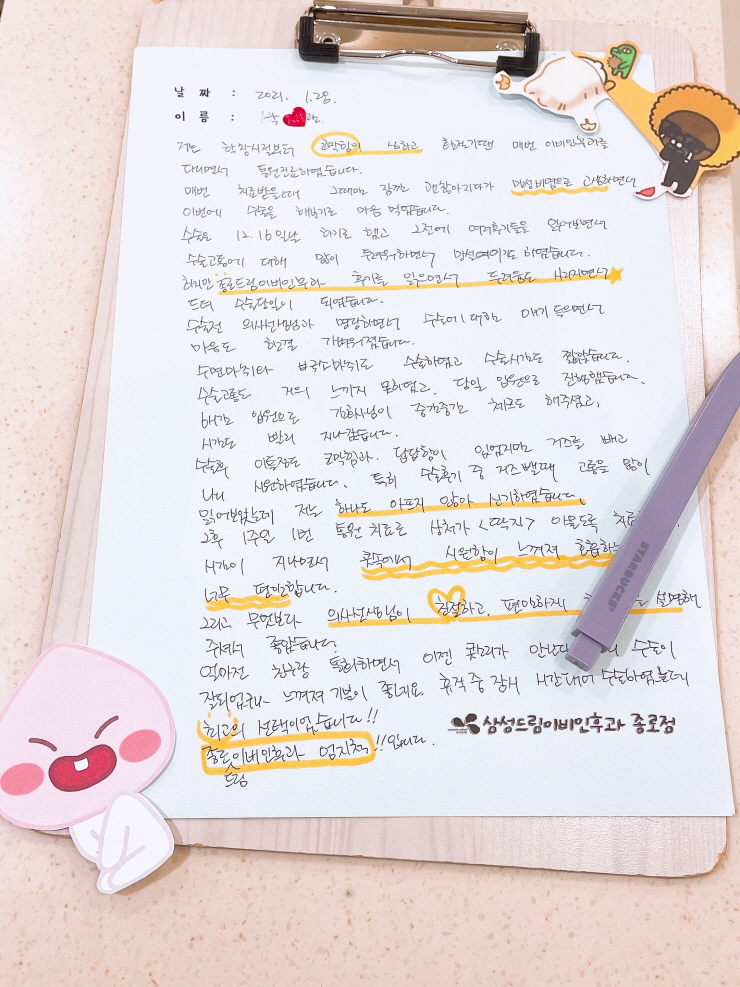 날 짜 : 2021. 1.28.
이 름 : 박
저는 학창시절부터 코막힘이 심하고, 환절기땐 매번 이비인후과를
다니면서 통원진료하였습니다.
매번 치료받을때 그때만 잠깐 괜찮아지다가 만성비염으로 고생하면서
이번에 수술을 해보기로 마음 먹었습니다.
수술은 12.16일날 하기로 했고 그전에 여러후기들을 읽어보면서
수술고통에 대해 많이 두려워하면서 망설여지기도 하였습니다.
하지만 종로드림이비인후과 후기를 읽으면서 두려움도 사라지면서
드뎌 수술당일이 되었습니다.
수술전 의사선생님과 면담하면서 수술에 대한 얘기 들으면서
마음도 한결 가벼워졌습니다.
수면마취와 부분마취로 수술하였고 수술시간도 짧았습니다.
수술고통도 거의 느끼지 못하였고, 당일 입원으로 진행했습니다.
6시간 입원으로 간호사님이 중간중간 체크도 해주셨고,
시간도 빨리 지나갔습니다.
수술후 이틀정도 코막힘과 답답함이 있었지만 거즈를 빼고
나니 시원하였습니다. 특히 수술후기 중 거즈뺄때 고통을 많이
읽어보았는데 저는 하나도 아프지 않아 신기하였습니다.
그후 1주일 1번 통원 치료로 상처가 <딱지> 아물도록
시간이 지나면서 콧속에서 시원함이 느껴져 호흡하는
너무 편안합니다.
그리고 무엇보다 의사선생님이 친절하고, 편안하게 설명해
주셔서 좋았습니다.
얼마전 친구랑 통화하면서 이젠 콧소리가 수술이
잘되었구나 느껴져 기분이 좋네요. 휴직 중 잠시 시간내어 수술하였는데
최고의 선택이었습니다!!
종로이비인후과 엄지척!!입니다.
드림
삼성드림이비인후과 종로점
STARBUCKS